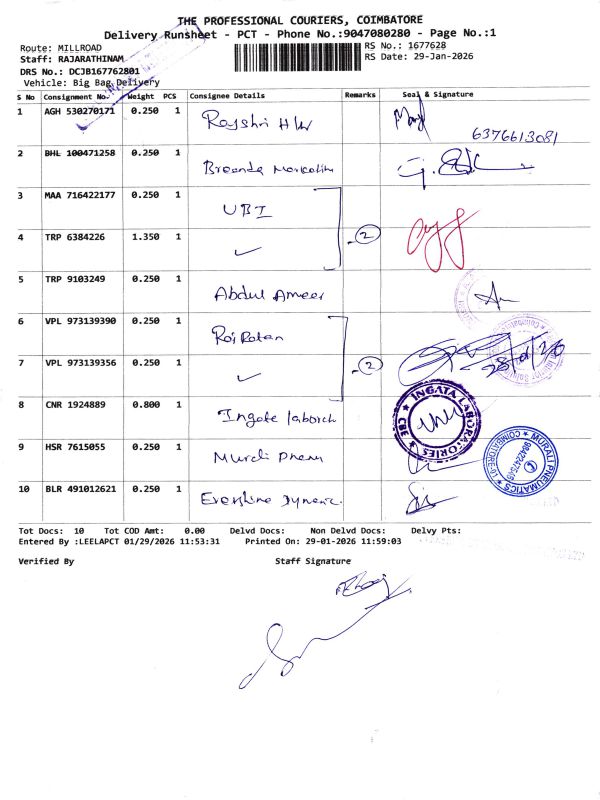 THE PROFESSIONAL COURIERS, COIMBATORE
Delivery Runsheet - PCT - Phone No.:9047080280 - Page No.:1
Route: MILLROAD
RS No.: 1677628
Staff: RAJARATHINAM
RS Date: 29-Jan-2026
DRS No.: DCJB167762801
Vehicle: Big Bag Delivery
S No Consignment No. Weight PCS Consignee Details Remarks Seal & Signature
1 AGH 530270171 0.250 1 Rayshri H/W
6376613081
2 BHL 100471258 0.250 1
3 MAA 716422177 0.250 1 UBI
2
4 TRP 6384226 1.350 1 ✓
5 TRP 9103249 0.250 1 Abdul Ameer
6 VPL 973139390 0.250 1 Raj Ratan
2
7 VPL 973139356 0.250 1 ✓
8 CNR 1924889 0.800 1 Ingate laborch
INGATA LABORATORIES ★ CBE ★
9 HSR 7615055 0.250 1 Murali
MURALI PNEUMATICS ★ COIMBATORE
10 BLR 491012621 0.250 1
Tot Docs: 10 Tot COD Amt: 0.00 Delvd Docs: Non Delvd Docs: Delvy Pts:
Entered By :LEELAPCT 01/29/2026 11:53:31 Printed On: 29-01-2026 11:59:03
Verified By Staff Signature